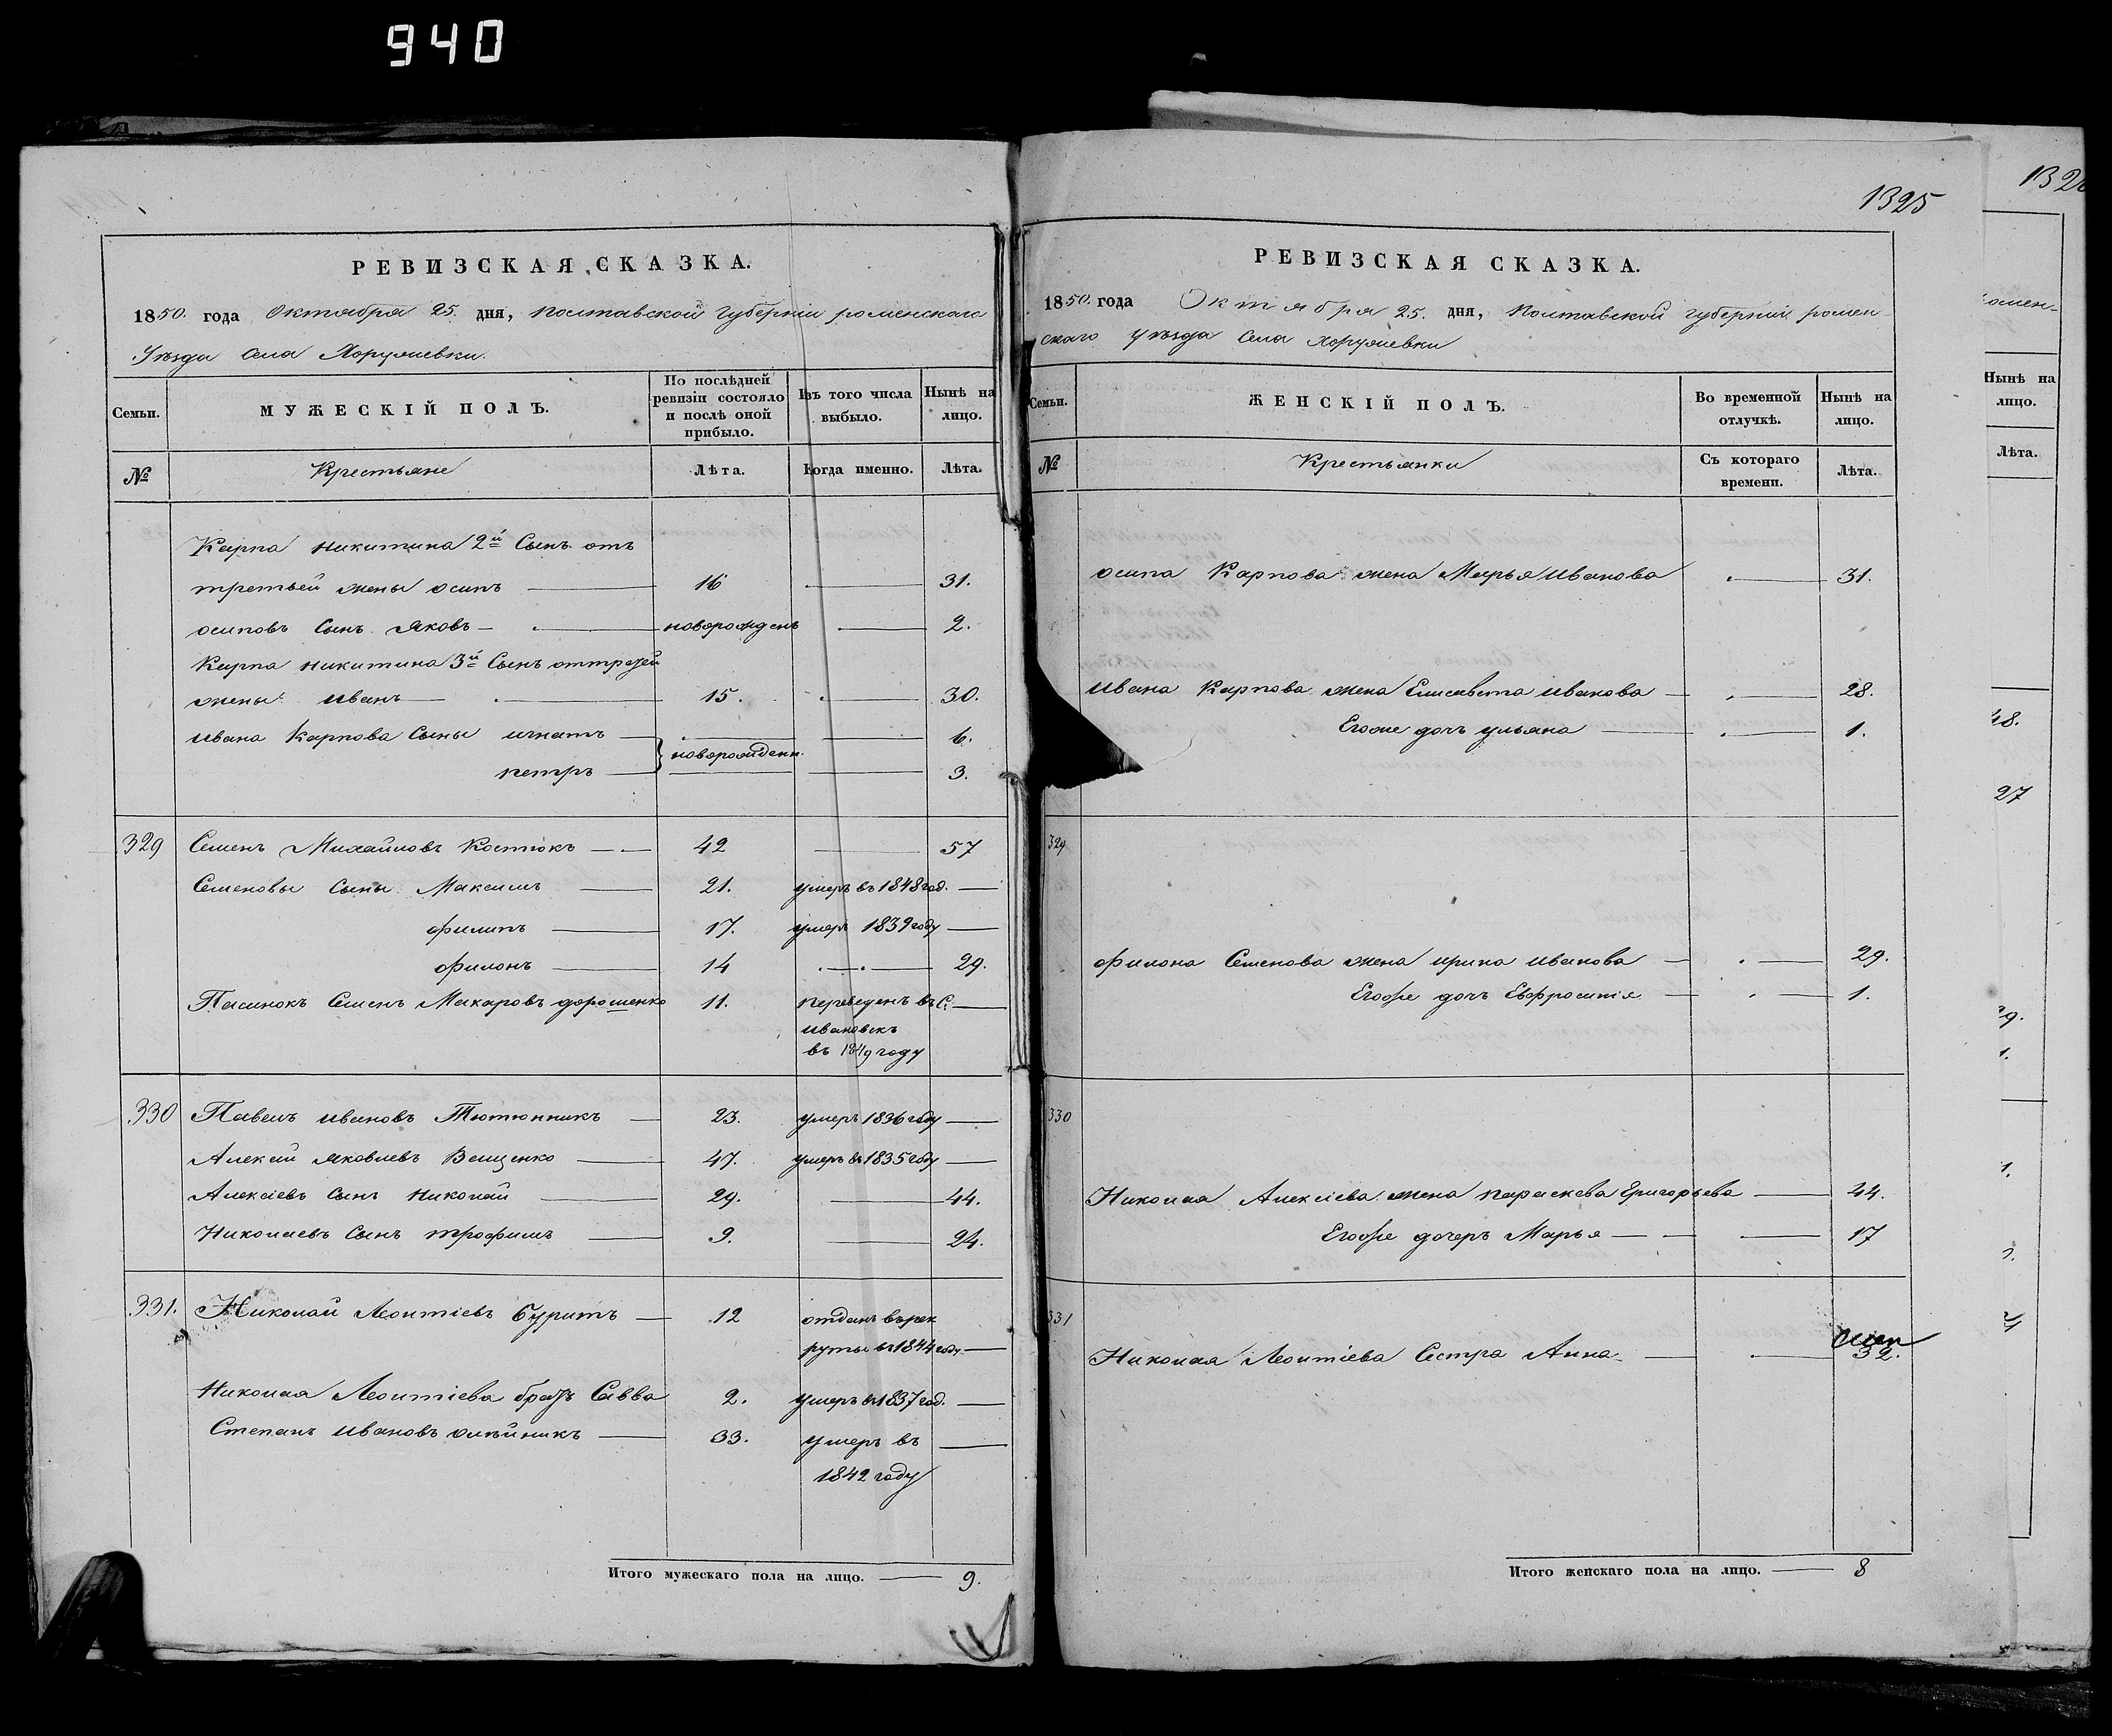 940
РЕВИЗСКАЯ СКАЗКА.
1850. года Октября 25. дня, полтавской губерніи роменскаго
Уѣзда Села Хоружевки.
Семьи.
МУЖЕСКІЙ ПОЛЪ.
По послѣдней
ревизіи состояло
и послѣ оной
прибыло.
Изъ того числа
выбыло.
Нынѣ на
лицо.
№
Крестьяне
Лѣта.
Когда именно.
Лѣта.
Карпа никитина 2й Сынъ отъ
третьей жены осипъ — 16 — 31.
осиповъ Сынъ Яковъ — новорожденъ — 2.
Карпа никитина 3й Сынъ
жены иванъ — 15. — 30.
ивана Карпова Сыны игнатъ — 6.
новорожденн.
петръ — 3.
329 Семенъ Михайловъ Костюкъ — 42 — 57
Семеновы Сыны Максимъ — 21. умеръ въ 1848 год. —
филипъ — 17. умеръ 1839 году —
филонъ — 14 — 29.
Пасинокъ Семенъ Макаровъ дорошенко 11. переведенъ въ С. —
ивановскъ
въ 1849 году
330 Павелъ ивановъ Тютюнникъ — 23. умеръ 1836 году —
Алексей яковлевъ Вещенко — 47. умеръ въ 1835 году —
Алексіевъ Сынъ николай — 29. — 44.
Николаевъ Сынъ трофимъ — 9. — 24.
331. Николай Леонтіевъ буритъ — 12 отданъ въ рек
руты въ 1844 году —
Николая Леонтіева братъ Савва 2. умеръ въ 1837 год. —
Степанъ ивановъ олѣйникъ — 33. умеръ въ —
1842 году
Итого мужескаго пола на лицо. — 9.
1325
РЕВИЗСКАЯ СКАЗКА.
1850. года Октября 25. дня, полтавской губерніи ромен
скаго уѣзда Села хоружевки
Семьи.
ЖЕНСКІЙ ПОЛЪ.
Во временной
отлучкѣ.
Нынѣ на
лицо.
№
Крестьянки
Съ котораго
времени.
Лѣта.
осипа Карпова жена Марья иванова — 31.
ивана Карпова жена Елисавета иванова — 28.
Егоже дочь ульяна — 1.
329
филона Семенова жена ирина иванова — 29.
Егоже дочь Евфросинія — 1.
330
Николая Алексіева жена параскева Григорьева — 44.
Егоже дочерь Марья — 17
331
Николая Леонтіева Сестра Анна — 32.
Итого женскаго пола на лицо. — 8
132
омен-
Нынѣ на
лицо.
Лѣта.
48.
27
1.
1.